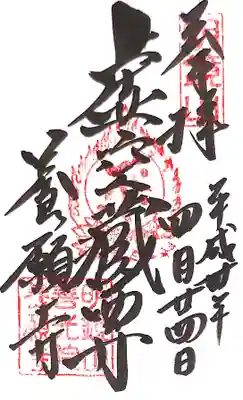 奉拝
平成廿年
四月廿四日
虚空蔵尊
養願寺